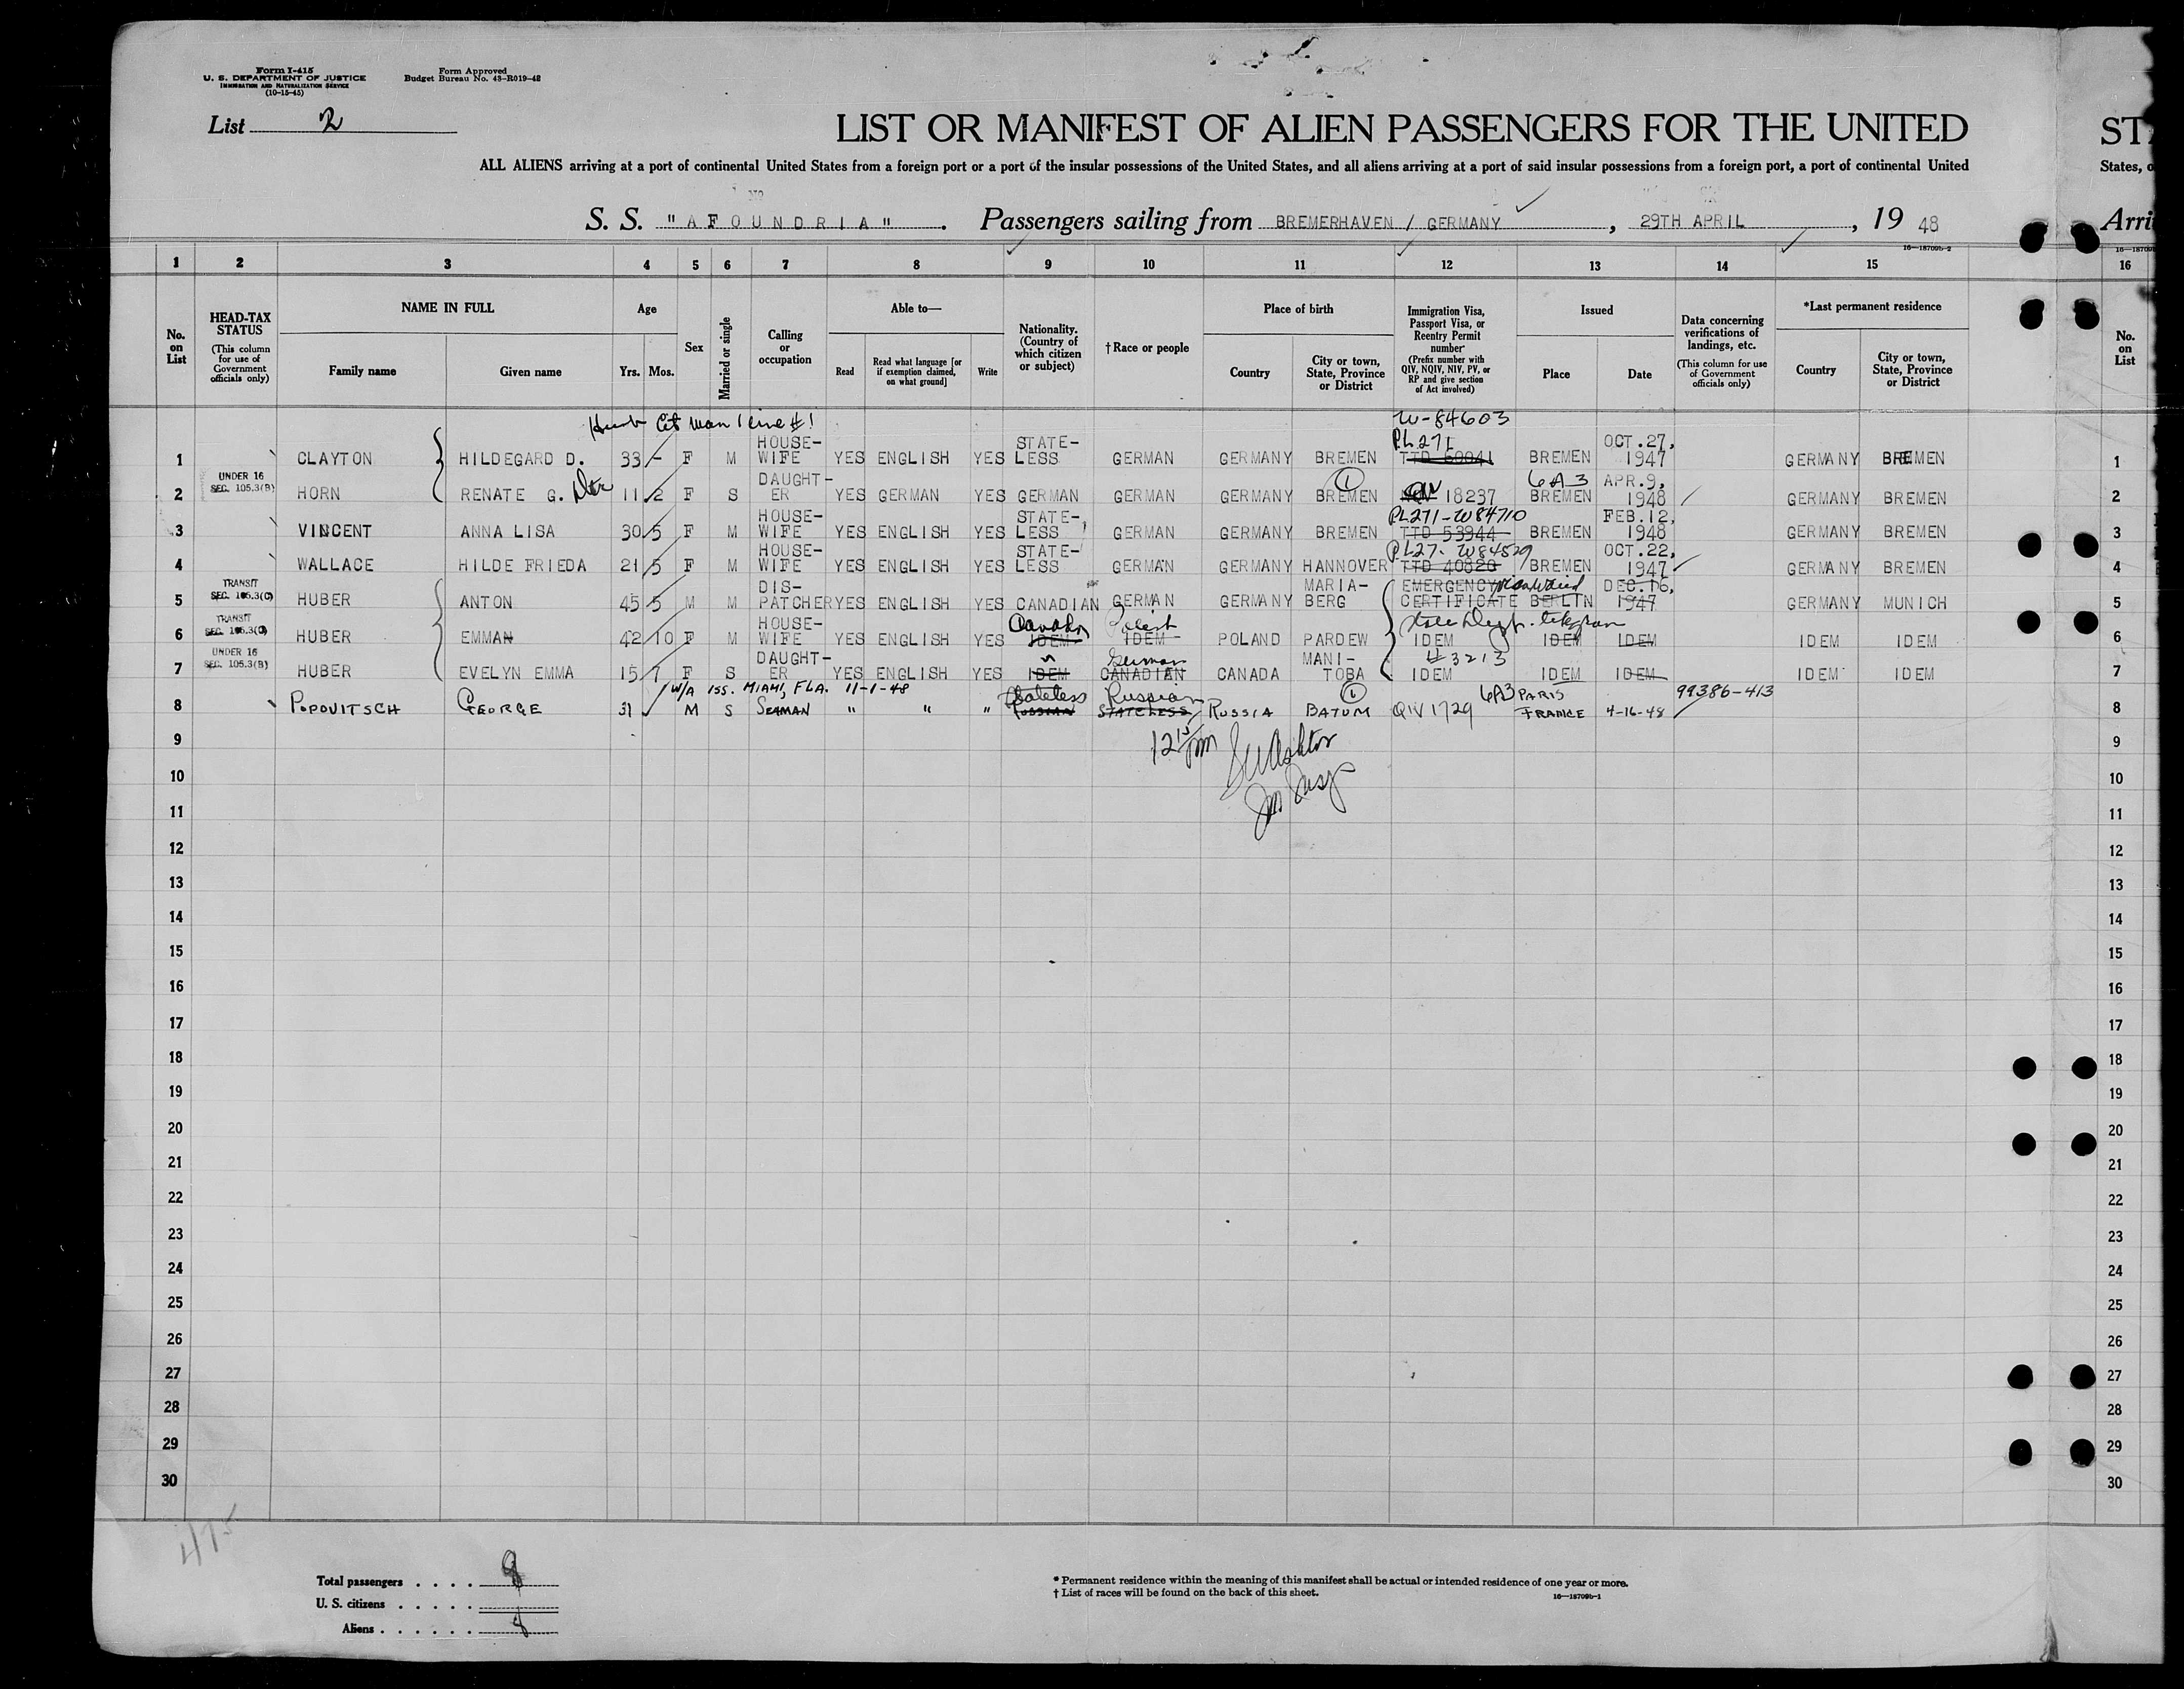 Form I-415
U. S. DEPARTMENT OF JUSTICE
IMMIGRATION AND NATURALIZATION SERVICE
(10-15-45)
Form Approved
Budget Bureau No. 43-R019-42
List 2
LIST OR MANIFEST OF ALIEN PASSENGERS FOR THE UNITED
STA
ALL ALIENS arriving at a port of continental United States from a foreign port or a port of the insular possessions of the United States, and all aliens arriving at a port of said insular possessions from a foreign port, a port of continental United
States, o
S. S. "AFOUNDRIA". Passengers sailing from BREMERHAVEN / GERMANY, 29TH APRIL, 19 48
Arri
16—18709b-2
16—18709
1 2 3 4 5 6 7 8 9 10 11 12 13 14 15 16
No. on List
HEAD-TAX STATUS
(This column for use of Government officials only)
NAME IN FULL
Family name
Given name
Age
Yrs. Mos.
Sex
Married or single
Calling or occupation
Able to—
Read
Read what language [or if exemption claimed, on what ground]
Write
Nationality. (Country of which citizen or subject)
†Race or people
Place of birth
Country
City or town, State, Province or District
Immigration Visa, Passport Visa, or Reentry Permit number
(Prefix number with QIV, NQIV, NIV, PV, or RP and give section of Act involved)
Issued
Place
Date
Data concerning verifications of landings, etc.
(This column for use of Government officials only)
*Last permanent residence
Country
City or town, State, Province or District
No. on List
W-84603
1 CLAYTON HILDEGARD D. 33 - F M HOUSE-WIFE YES ENGLISH YES STATE-LESS GERMAN GERMANY BREMEN PL271 TTD 60041 BREMEN OCT.27, 1947 GERMANY BREMEN 1
UNDER 16 SEC. 105.3(B)
2 HORN RENATE G. 11 2 F S DAUGHT-ER YES GERMAN YES GERMAN GERMAN GERMANY BREMEN 1 18237 6A3 BREMEN APR.9, 1948 GERMANY BREMEN 2
3 VINCENT ANNA LISA 30 5 F M HOUSE-WIFE YES ENGLISH YES STATE-LESS GERMAN GERMANY BREMEN PL271-W84710 TTD 53944 BREMEN FEB.12, 1948 GERMANY BREMEN 3
4 WALLACE HILDE FRIEDA 21 5 F M HOUSE-WIFE YES ENGLISH YES STATE-LESS GERMAN GERMANY HANNOVER PL27. W84529 TTD 40820 BREMEN OCT.22, 1947 GERMANY BREMEN 4
TRANSIT SEC. 105.3(C)
5 HUBER ANTON 45 5 M M DIS-PATCHER YES ENGLISH YES CANADIAN GERMAN GERMANY MARIA-BERG EMERGENCY CERTIFICATE visa waived BERLIN DEC.16, 1947 GERMANY MUNICH 5
TRANSIT SEC. 105.3(C)
6 HUBER EMMAN 42 10 F M HOUSE-WIFE YES ENGLISH YES IDEM Polish IDEM POLAND PARDEW State Dept. telegram IDEM IDEM IDEM IDEM IDEM 6
UNDER 16 SEC. 105.3(B)
7 HUBER EVELYN EMMA 15 7 F S DAUGHT-ER YES ENGLISH YES IDEM German CANADIAN CANADA MANI-TOBA #3213 IDEM IDEM IDEM IDEM IDEM 7
W/A ISS. MIAMI, FLA. 11-1-48
8 POPOVITSCH GEORGE 31 M S SEAMAN " " " Stateless RUSSIAN Russian STATELESS RUSSIA BATUM 1 QIV 1729 6A3 PARIS FRANCE 4-16-48 99386-413 8
9 9
12 15 pm
10 10
11 11
12 12
13 13
14 14
15 15
16 16
17 17
18 18
19 19
20 20
21 21
22 22
23 23
24 24
25 25
26 26
27 27
28 28
29 29
30 30
475
Total passengers . . . . 8
U. S. citizens . . . . .
Aliens . . . . . . 8
* Permanent residence within the meaning of this manifest shall be actual or intended residence of one year or more.
† List of races will be found on the back of this sheet.
16—18709b-1